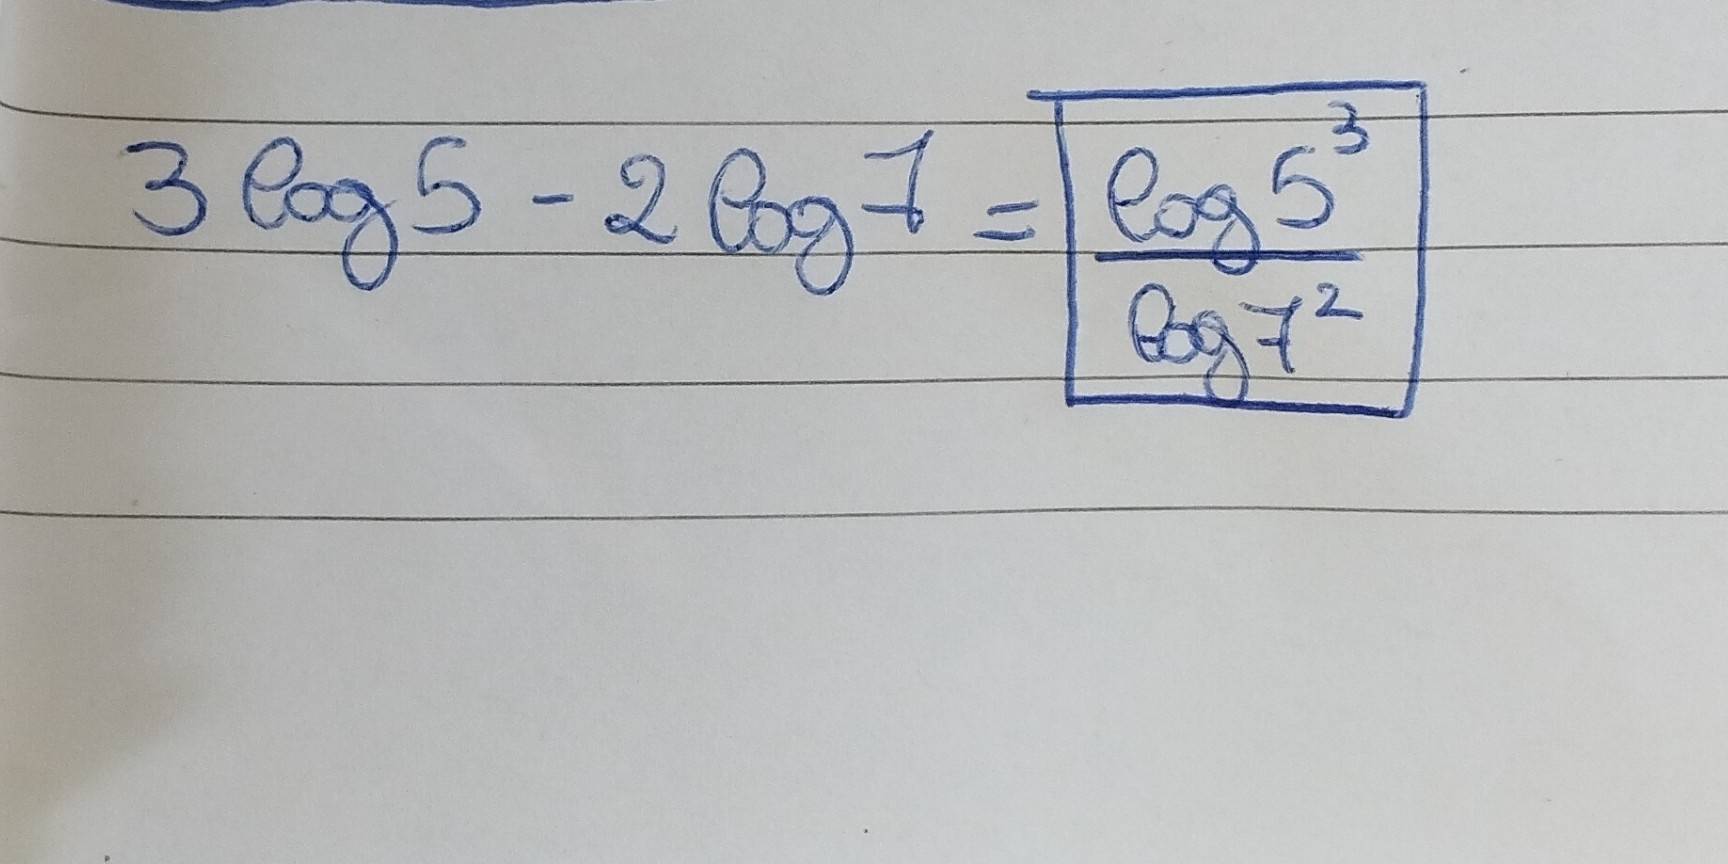 3 log 5 - 2 log 7 = log 5³ / log 7²